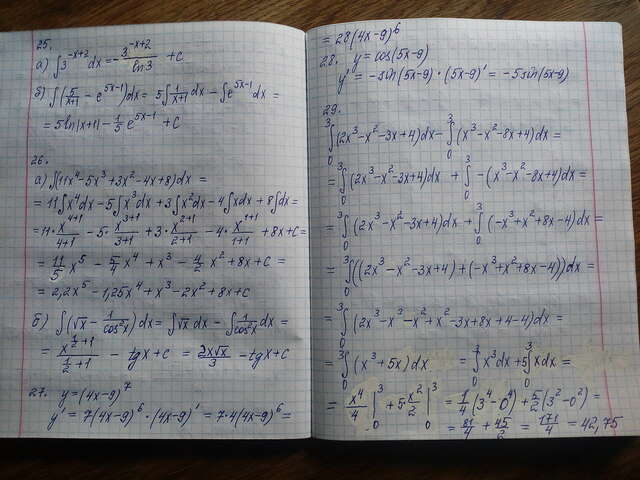 25.
а) ∫3^(-x+2) dx = - 3^(-x+2)/ln3 + c
б) ∫(5/(x+1) - e^(5x-1))dx = 5∫1/(x+1) dx - ∫e^(5x-1) dx =
= 5ln|x+1| - 1/5 e^(5x-1) + c
26.
а) ∫(11x^4 - 5x^3 + 3x^2 - 4x + 8)dx =
= 11∫x^4dx - 5∫x^3dx + 3∫x^2dx - 4∫xdx + 8∫dx =
= 11·x^(4+1)/(4+1) - 5·x^(3+1)/(3+1) + 3·x^(2+1)/(2+1) - 4·x^(1+1)/(1+1) + 8x + c =
= 11/5 x^5 - 5/4 x^4 + x^3 - 4/2 x^2 + 8x + c =
= 2,2x^5 - 1,25x^4 + x^3 - 2x^2 + 8x + c
б) ∫(√x - 1/cos^2x)dx = ∫√x dx - ∫1/cos^2x dx =
= x^(1/2+1)/(1/2+1) - tgx + c = 2x√x/3 - tgx + c
27. y = (4x-9)^7
y' = 7(4x-9)^6 · (4x-9)' = 7·4(4x-9)^6 =
= 28(4x-9)^6
28. y = cos(5x-9)
y' = -sin(5x-9)·(5x-9)' = -5sin(5x-9)
29.
∫_0^3 (2x^3-x^2-3x+4)dx - ∫_0^3 (x^3-x^2-8x+4)dx =
= ∫_0^3 (2x^3-x^2-3x+4)dx + ∫_0^3 -(x^3-x^2-8x+4)dx =
= ∫_0^3 (2x^3-x^2-3x+4)dx + ∫_0^3 (-x^3+x^2+8x-4)dx =
= ∫_0^3 ((2x^3-x^2-3x+4)+(-x^3+x^2+8x-4))dx =
= ∫_0^3 (2x^3-x^3-x^2+x^2-3x+8x+4-4)dx =
= ∫_0^3 (x^3+5x)dx = ∫_0^3 x^3dx + 5∫_0^3 xdx =
= x^4/4 |_0^3 + 5 x^2/2 |_0^3 = 1/4(3^4-0^4) + 5/2(3^2-0^2) =
= 81/4 + 45/2 = 171/4 = 42,75